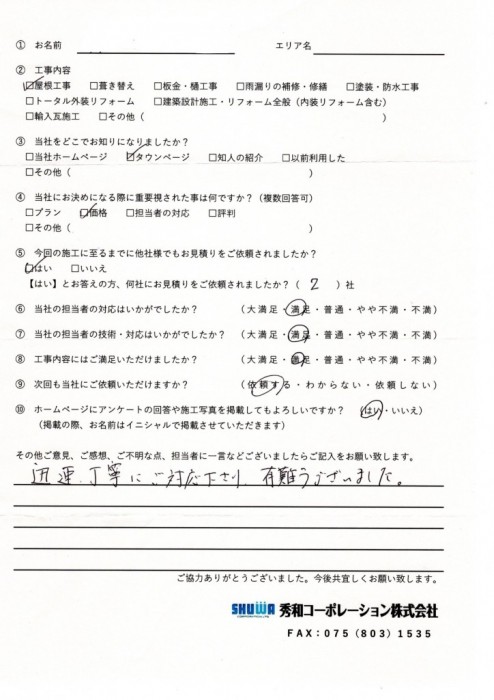 ① お名前 エリア名
② 工事内容
☑屋根工事 □葺き替え □板金・樋工事 □雨漏りの補修・修繕 □塗装・防水工事
□トータル外装リフォーム □建築設計施工・リフォーム全般（内装リフォーム含む）
□輸入瓦施工 □その他（ ）
③ 当社をどこでお知りになりましたか？
□当社ホームページ ☑タウンページ □知人の紹介 □以前利用した
□その他（ ）
④ 当社にお決めになる際に重要視された事は何ですか？（複数回答可）
□プラン ☑価格 □担当者の対応 □評判
□その他（ ）
⑤ 今回の施工に至るまでに他社様でもお見積りをご依頼されましたか？
☑はい □いいえ
【はい】とお答えの方、何社にお見積りをご依頼されましたか？（ 2 ）社
⑥ 当社の担当者の対応はいかがでしたか？ （大満足・満足・普通・やや不満・不満）
⑦ 当社の担当者の技術・対応はいかがでしたか？ （大満足・満足・普通・やや不満・不満）
⑧ 工事内容にはご満足いただけましたか？ （大満足・満足・普通・やや不満・不満）
⑨ 次回も当社にご依頼いただけますか？ （依頼する・わからない・依頼しない）
⑩ ホームページにアンケートの回答や施工写真を掲載してもよろしいですか？ （はい・いいえ）
（掲載の際、お名前はイニシャルで掲載させていただきます）
その他ご意見、ご感想、ご不明な点、担当者に一言などございましたらご記入をお願い致します。
迅速、丁寧にご対応下さり、有難うございました。
ご協力ありがとうございました。今後共宜しくお願い致します。
SHUWA 秀和コーポレーション株式会社
FAX：075（803）1535